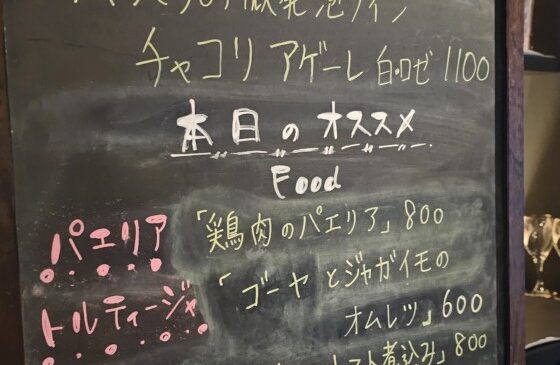 微発泡ワイン
チャコリ アゲーレ 白・ロゼ 1100
本日のオススメ
Food
パエリア 「鶏肉のパエリア」 800
トルティージャ 「ゴーヤとジャガイモの
オムレツ」 600
トマト煮込み」 800